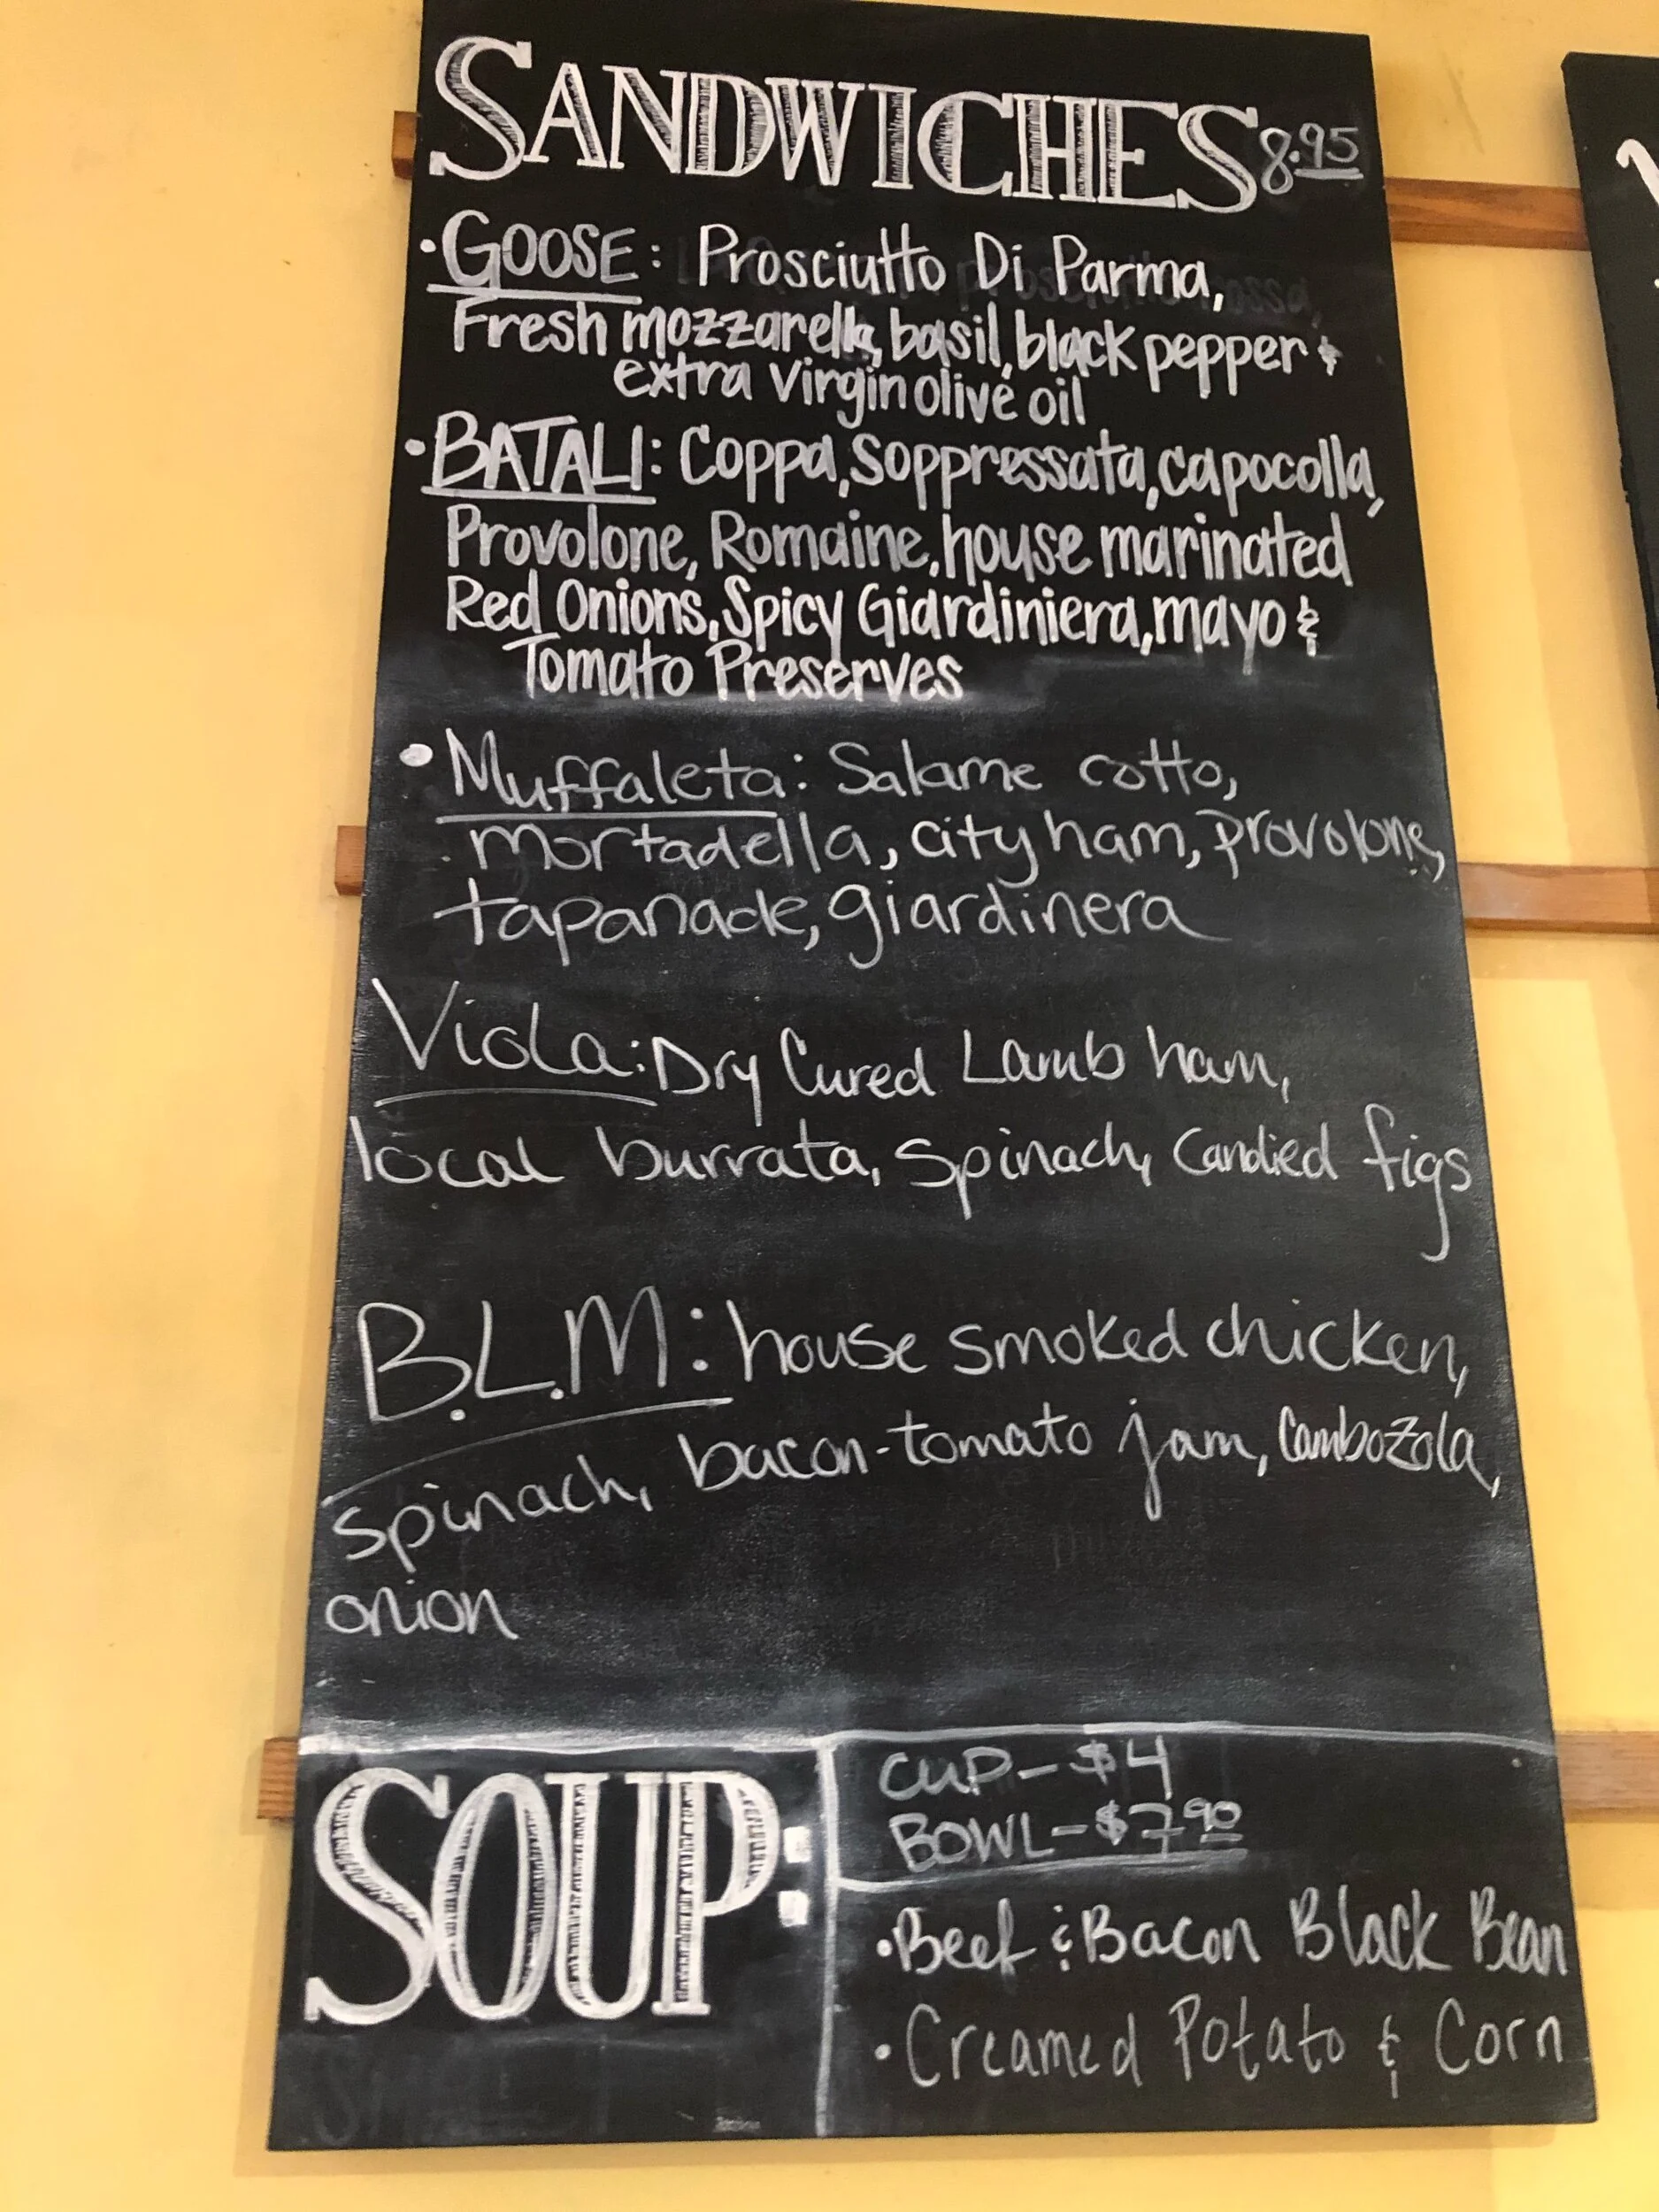 SANDWICHES 8.95
• GOOSE: Prosciutto Di Parma,
Fresh mozzarella, basil, black pepper &
extra virgin olive oil
• BATALI: Coppa, Soppressata, capocolla,
Provolone, Romaine, house marinated
Red Onions, Spicy Giardiniera, mayo &
Tomato Preserves
• Muffaleta: Salame cotto,
mortadella, city ham, provolone,
tapanade, giardinera
Viola: Dry Cured Lamb ham,
local burrata, spinach, candied figs
B.L.M: house smoked chicken,
spinach, bacon-tomato jam, Cambozola,
onion
SOUP:
CUP - $4
BOWL - $7.90
• Beef & Bacon Black Bean
• Creamed Potato & Corn